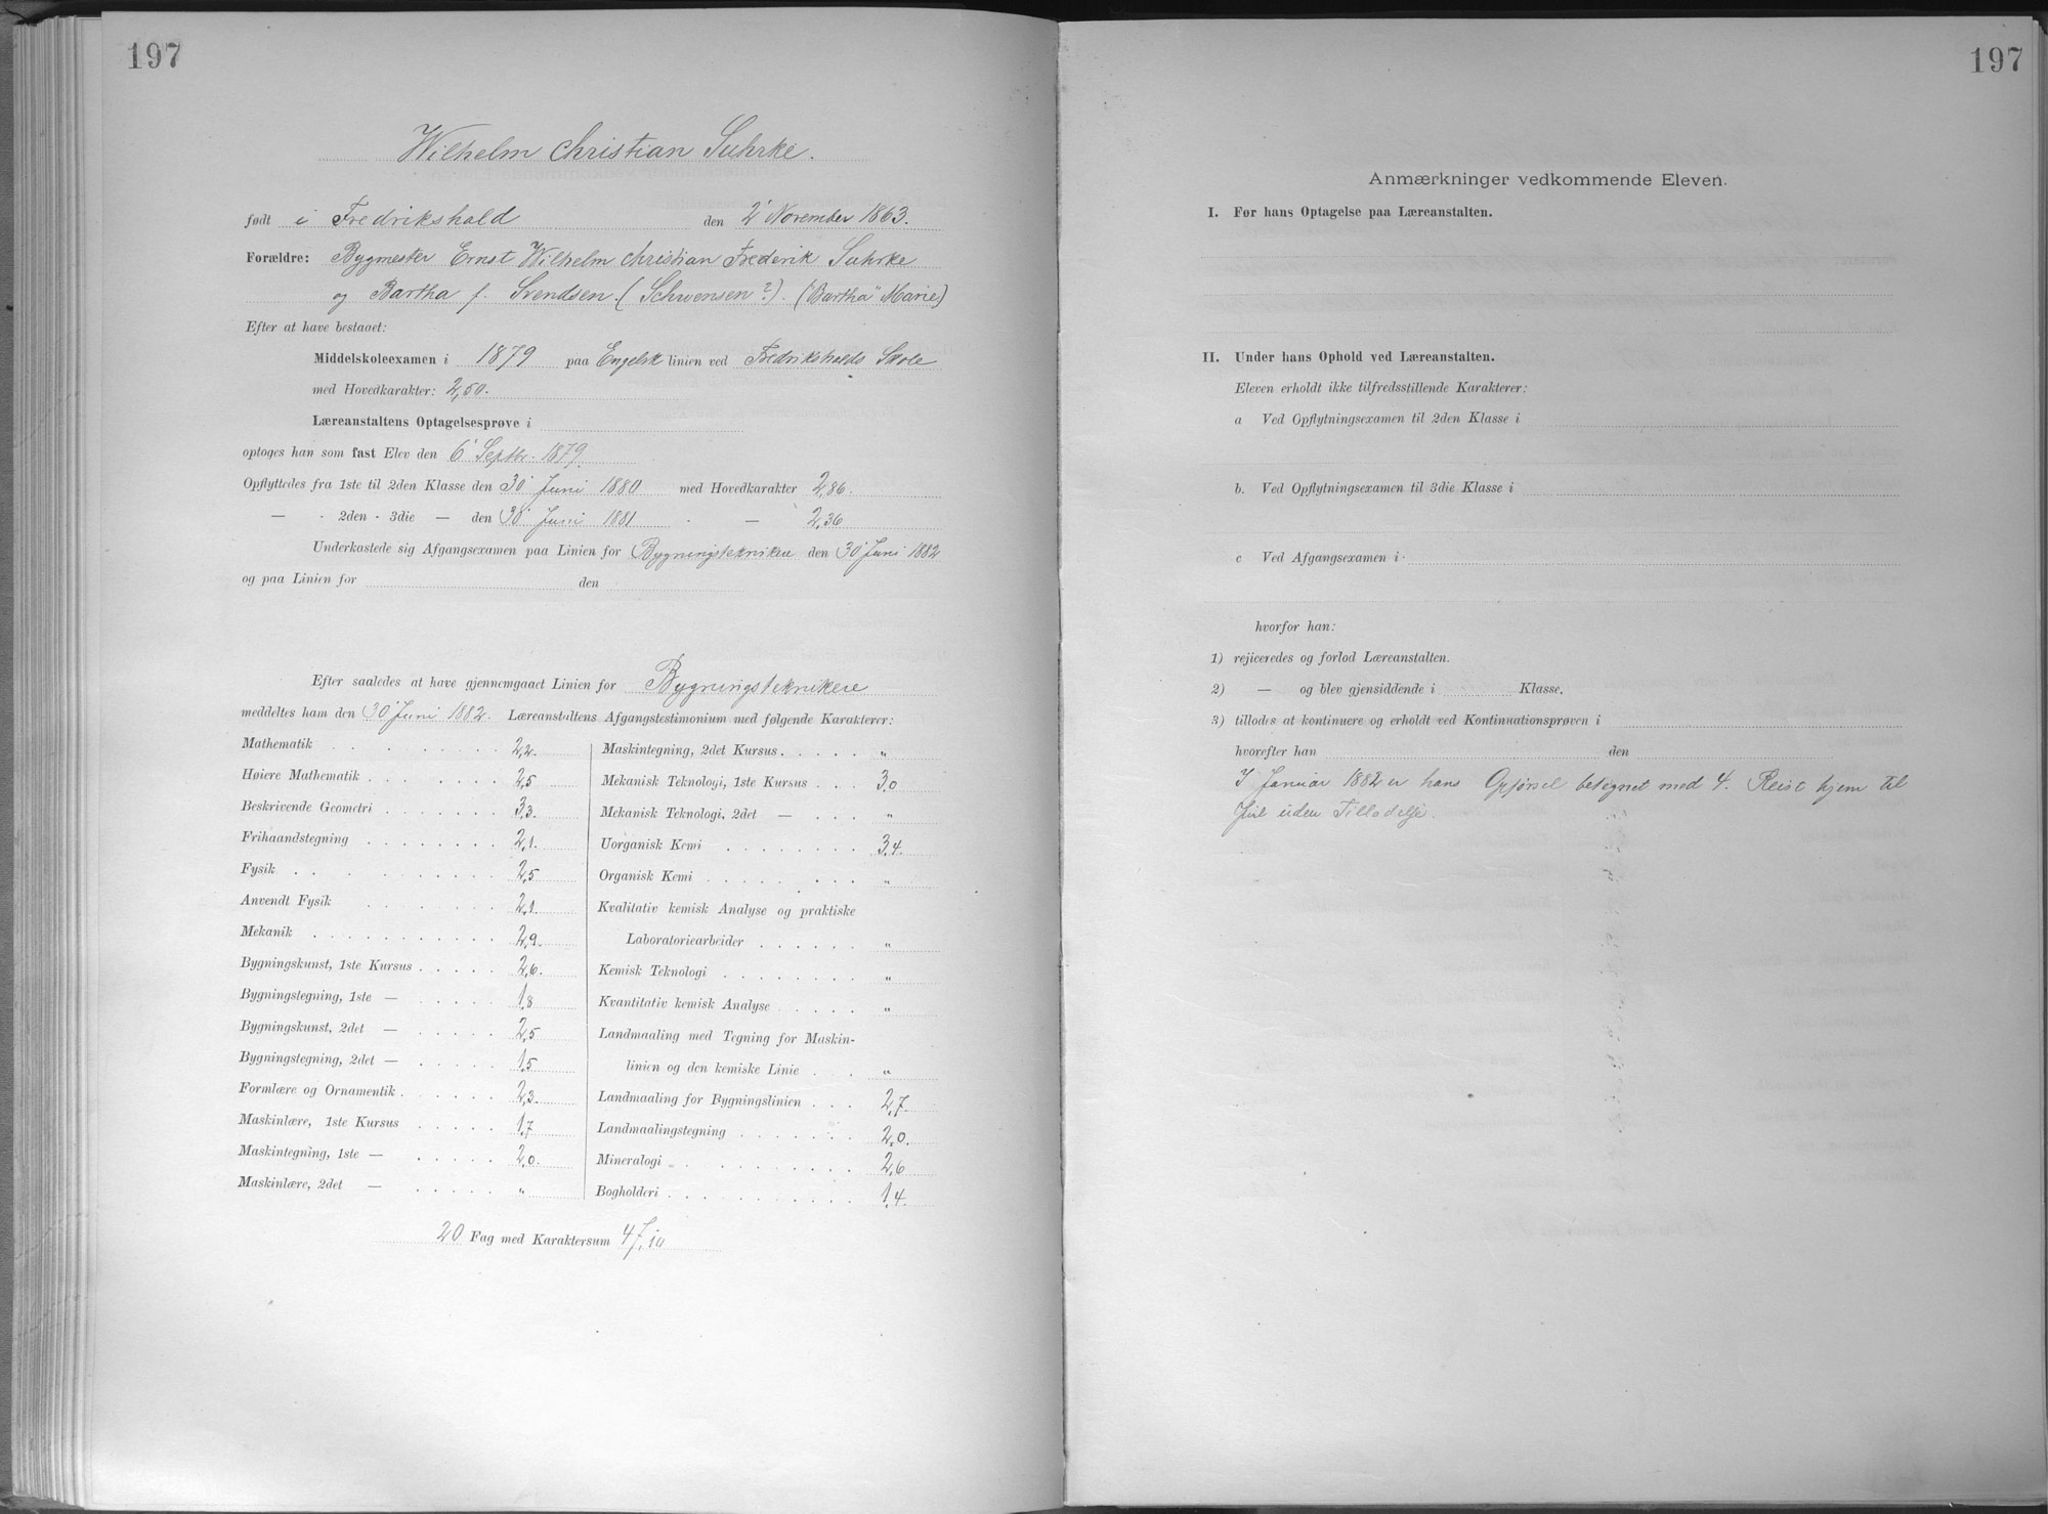 197
Wilhelm Christian Suhrke.
født i Fredrikshald den 2' November 1863.
Forældre: Bygmester Ernst Wilhelm Christian Frederik Suhrke
og Bartha f. Svendsen (Schwensen?). ("Bartha" Marie)
Efter at have bestaaet:
Middelskoleexamen i 1879 paa Engelsk linien ved Fredrikshalds Skole
med Hovedkarakter: 2,50.
Læreanstaltens Optagelsesprøve i
optoges han som fast Elev den 6' Septbr. 1879.
Opflyttedes fra 1ste til 2den Klasse den 30' Juni 1880 med Hovedkarakter 2,86.
— - 2den - 3die — den 30' Juni 1881 - — 2,36
Underkastede sig Afgangsexamen paa Linien for Bygningsteknikere den 30' Juni 1882
og paa Linien for den
Efter saaledes at have gjennemgaaet Linien for Bygningsteknikere
meddeltes ham den 30' Juni 1882. Læreanstaltens Afgangstestimonium med følgende Karakterer:
Mathematik 2,2.
Høiere Mathematik 2,5
Beskrivende Geometri 3,3.
Frihaandstegning 2,1.
Fysik 2,5
Anvendt Fysik 2,1.
Mekanik 2,9.
Bygningskunst, 1ste Kursus 2,6.
Bygningstegning, 1ste — 1,8
Bygningskunst, 2det — 2,5
Bygningstegning, 2det — 1,5
Formlære og Ornamentik 2,3.
Maskinlære, 1ste Kursus 1,7
Maskintegning, 1ste — 2,0.
Maskinlære, 2det — "
Maskintegning, 2det Kursus "
Mekanisk Teknologi, 1ste Kursus 3,0
Mekanisk Teknologi, 2det — "
Uorganisk Kemi 3,4.
Organisk Kemi "
Kvalitativ kemisk Analyse og praktiske
Laboratoriearbeider "
Kemisk Teknologi "
Kvantitativ kemisk Analyse "
Landmaaling med Tegning for Maskin-
linien og den kemiske Linie "
Landmaaling for Bygningslinien 2,7.
Landmaalingstegning 2,0.
Mineralogi 2,6
Bogholderi 1,4.
20 Fag med Karaktersum 47,10
197
Anmærkninger vedkommende Eleven.
I. Før hans Optagelse paa Læreanstalten.
II. Under hans Ophold ved Læreanstalten.
Eleven erholdt ikke tilfredsstillende Karakterer:
a Ved Opflytningsexamen til 2den Klasse i
b. Ved Opflytningsexamen til 3die Klasse i
c Ved Afgangsexamen i
hvorfor han:
1) rejiceredes og forlod Læreanstalten.
2) — og blev gjensiddende i Klasse.
3) tillodes at kontinuere og erholdt ved Kontinuationsprøven i
hvorefter han den
I Januar 1882 er hans Opførsel betegnet med 4. Reist hjem til
Jul uden Tilladelse.